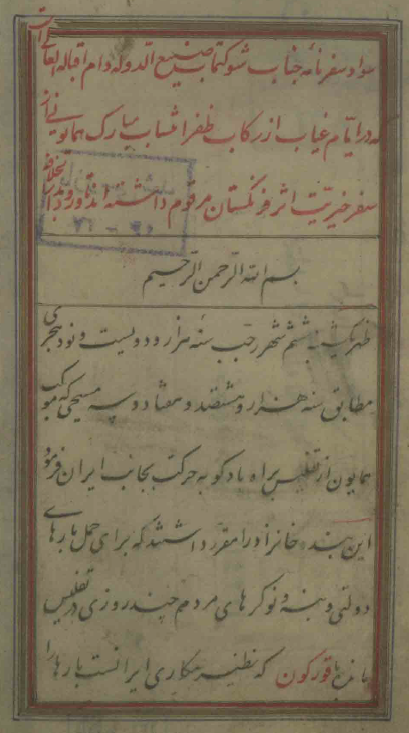 سواد سفرنامه جناب شوکتمآب صنیع الدوله دام اقباله العالی
که در ایام غیاب از رکاب ظفر انتساب مبارک همایونی از
سفر خیریت اثر فرنگستان مرقوم داشته اند
بسم الله الرحمن الرحیم
ظهر یکشنبه ششم شهر رجب سنه هزار و دویست و نود هجری
مطابق سنه هزار و هشتصد و هفتاد و سه مسیحی که موکب
همایون از تفلیس براه بادکوبه حرکت بجانب ایران فرمود
این بنده خانزاد را مقرر داشتند که برای حمل بارهای
دولتی و بنه و نوکرهای مردم چند روزی در تفلیس
بمانم با قورکون که نظیر مکاری ایرانست بارها را